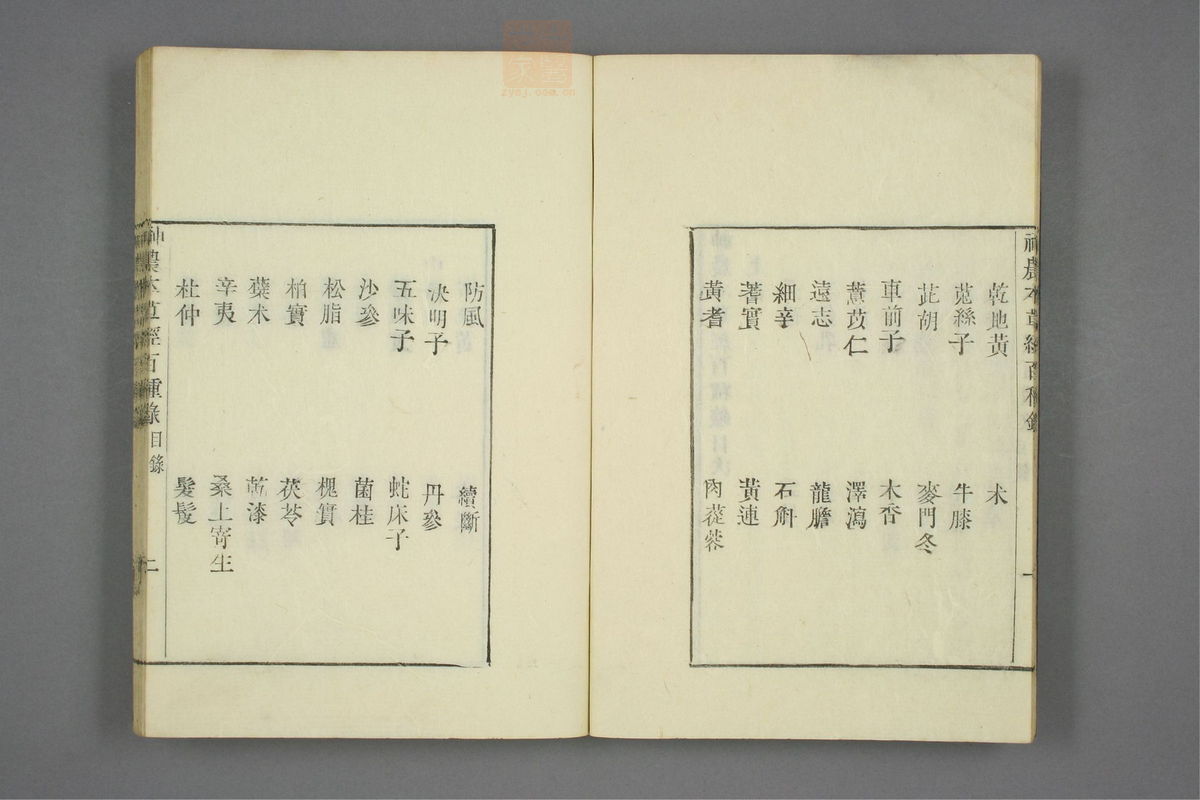 神農本草經百種錄
一
乾地黃 术
菟絲子 牛膝
茈胡 麥門冬
車前子 木香
薏苡仁 澤瀉
遠志 龍膽
細辛 石斛
蓍實 黃連
黃耆 肉蓯蓉
防風 續斷
決明子 丹參
五味子 蛇床子
沙參 菌桂
松脂 槐實
柏實 茯苓
蘗木 乾漆
辛夷 桑上寄生
杜仲 髮髲
神農本草經百種錄 目錄
二
zyoj.ooo.cn